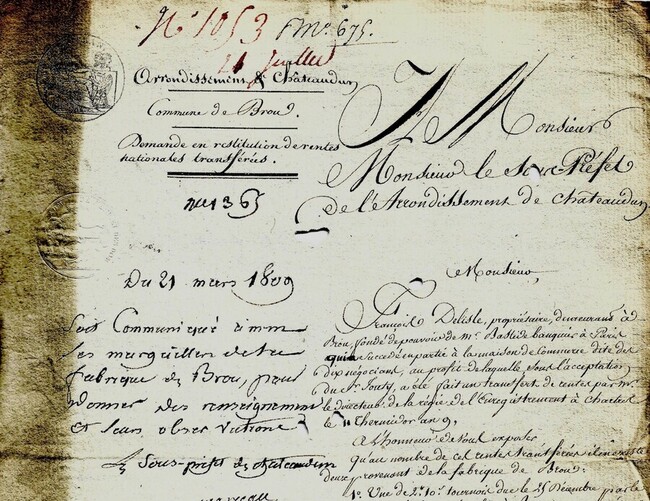 N° 1053 f m° 675.
21 Juillet
Arrondissement de Chateaudun
Commune de Brou.
Demande en restitution de rentes
nationales transférées.
n° 136
Du 21 mars 1809
Soit Communiqué a mm
les marguilliers de la
fabrique de Brou, pour
donner des renseignemens
et leurs observations
Le Sous-préfet de chateaudun
A Monsieur
Monsieur le Sous-Préfet
De l'Arrondissement de Chateaudun
Monsieur,
François Delisle, propriétaire, demeurant à
Brou, fondé de pouvoir de Mr. Bastide banquier à Paris
qui a succédé en partie à la maison de Commerce dite des
dix négociant, au profit de laquelle, sous l'acceptation
du Sr. Jouty, a été fait un transfert de rentes par Mr.
le Directeur de la régie de l'Enregistrement à Chartres
le 11 thermidor an 9,
a l'honneur de vous exposer
qu'au nombre de cet rentes transférées il en existe
deux provenant de la fabrique de Brou:
1°. Une de 2# 10s. tournois due le 25 Décembre par le